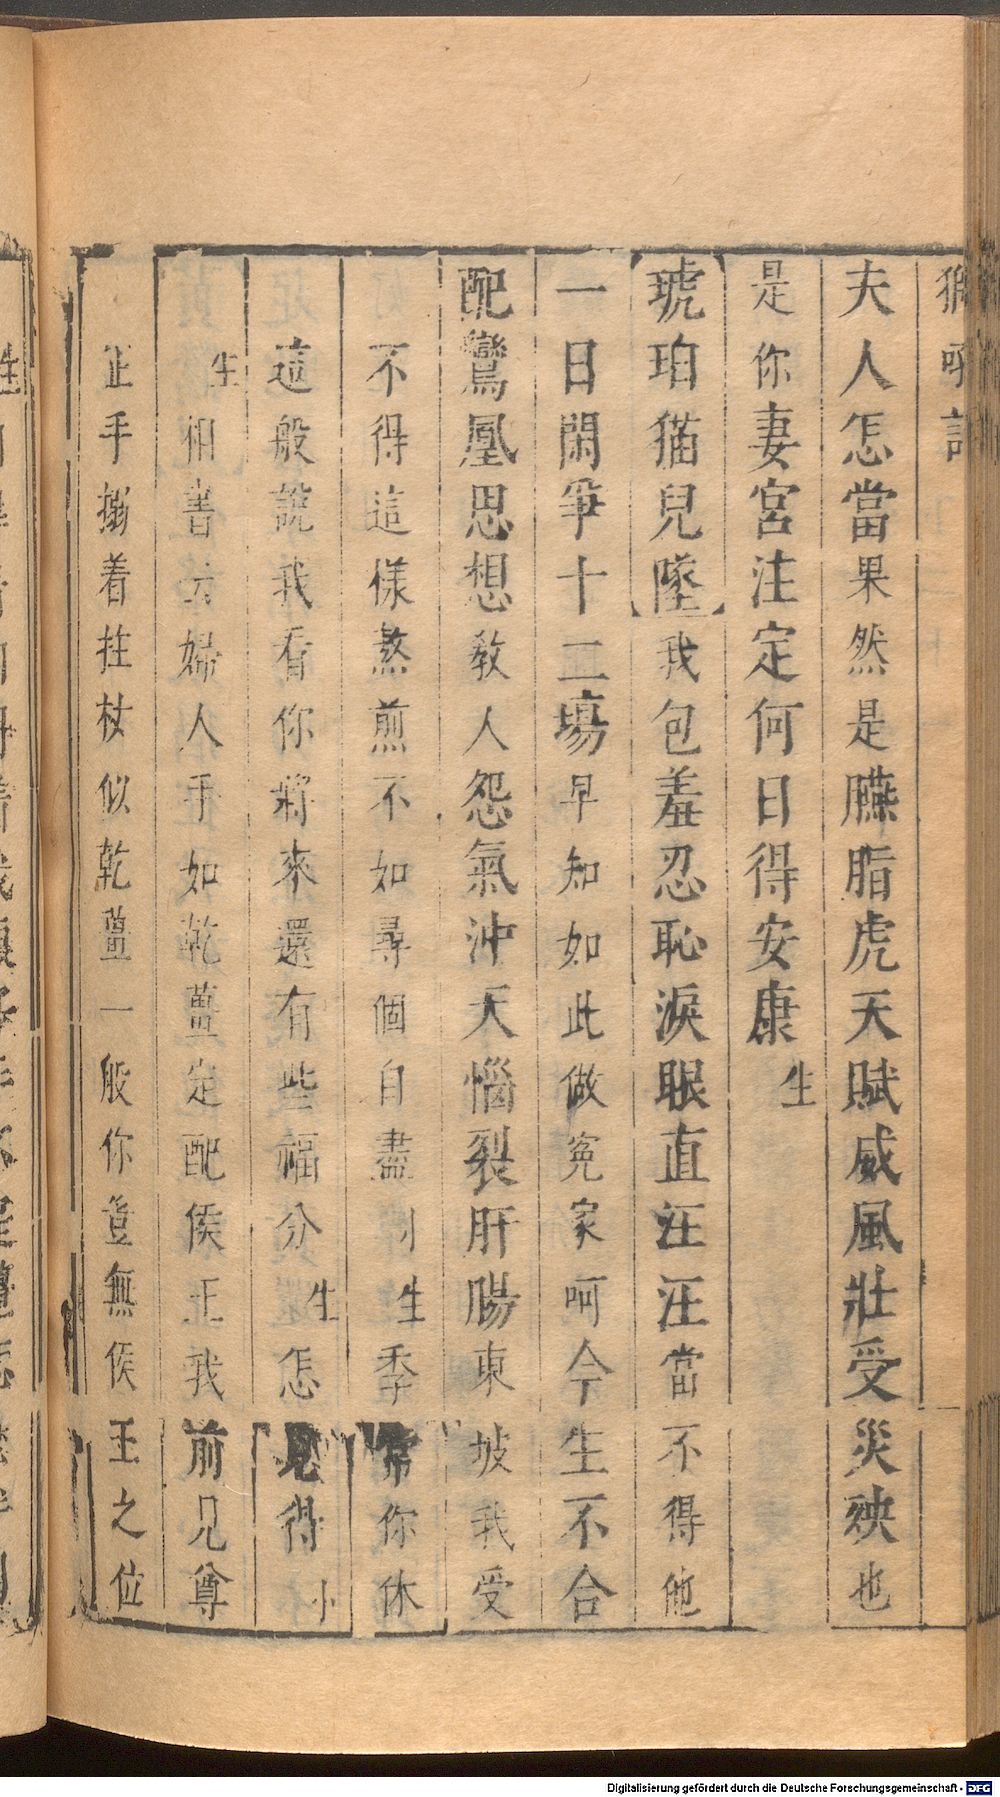 夫人怎當果然是臙脂虎天賦威風壯受災殃也
是你妻宮注定何日得安康生
琥珀猫兒墜我包羞忍恥淚眼直汪汪當不得他
一日閑爭十二塲早知如此做寃家呵今生不合
配鸞凰思想教人怨氣沖天惱裂肝腸東坡我受
不得這樣熬煎不如尋個自盡 生季常你休
這般説我看你將來還有些福分生怎見得小
生相書云婦人手如乾薑定配侯王我前見尊
正手搦着拄杖似乾薑一般你豈無侯王之位
Digitalisierung gefördert durch die Deutsche Forschungsgemeinschaft - DFG